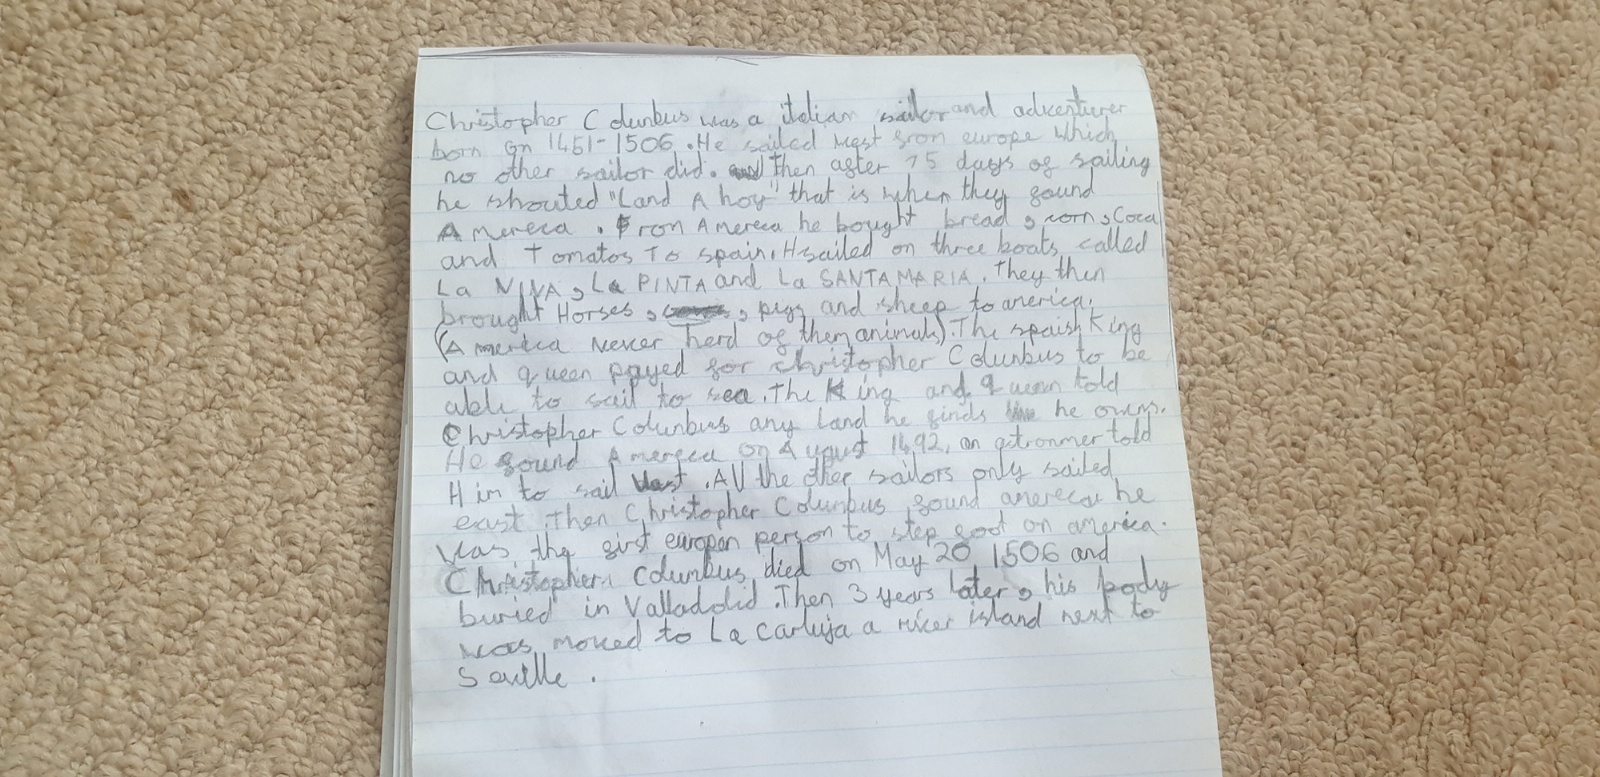 Christopher Columbus was a italian sailor and adventurer
born on 1451-1506. He sailed west from europe which
no other sailor did. then after 75 days of sailing
he shouted "Land A hoy" that is when they found
Amereca. From Amereca he bought bread, corn, Coca
and Tomatos To spain. H sailed on three boats, called
La NINA, La PINTA and La SANTA MARIA. They then
brought Horses, , pigs and sheep to america.
(Amereca never herd of them animals) The spaish King
and queen payed for christopher Columbus to be
able to sail to sea. The King and queen told
Christopher Columbus any Land he finds he owns.
He found Amereca on August 1492, an astronmer told
Him to sail West. All the other sailors only sailed
east. Then Christopher Columbus found amereca he
was the first europan person to step foot on america.
Christopher Columbus died on May 20 1506 and
buried in Valladolid. Then 3 years later, his body
was moved to La Cartuja a river island next to
Seville.